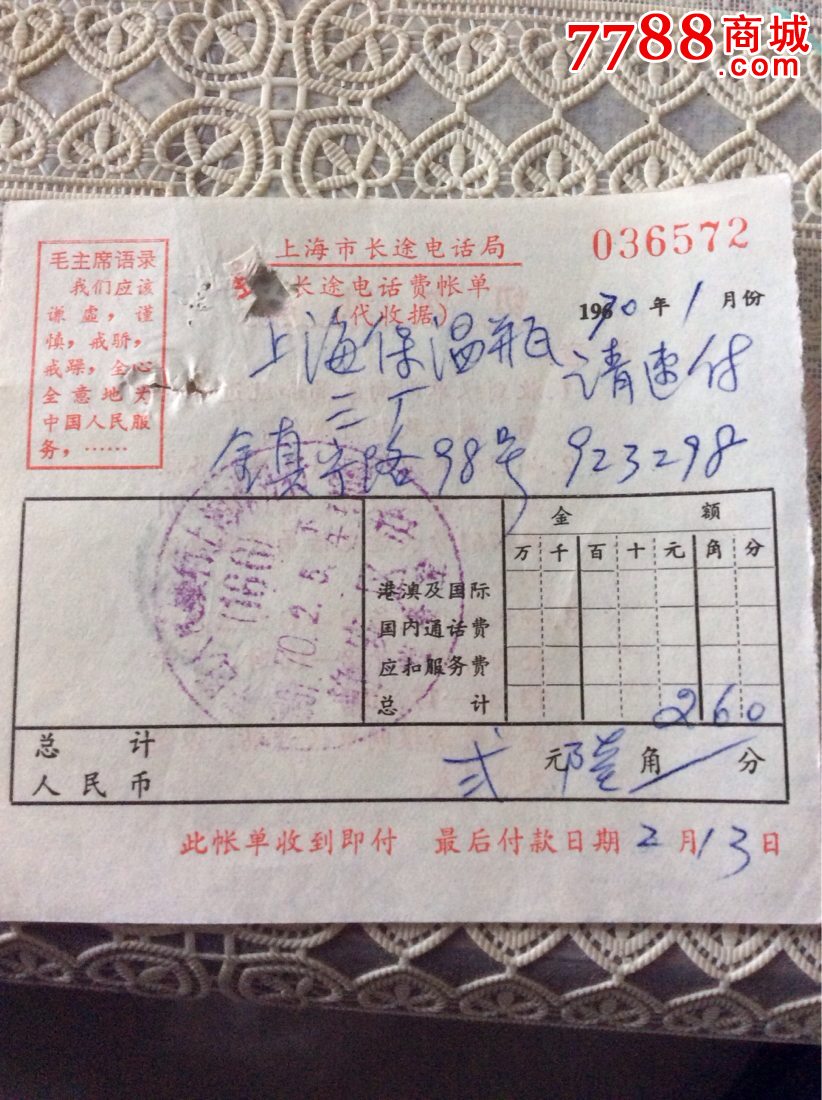 7788商城
.com
上海市长途电话局
036572
长途电话费帐单
(代收据)
1970年1月份
毛主席语录
我们应该
谦虚，谨
慎，戒骄，
戒躁，全心
全意地为
中国人民服
务，……
上海保温瓶
二厂
请速付
镇宁路98号 923298
金 额
万 千 百 十 元 角 分
港澳及国际
国内通话费
应扣服务费
总 计 260
70.2.5
总 计
人民币
弍 元 陆 角 分
此帐单收到即付 最后付款日期2月13日